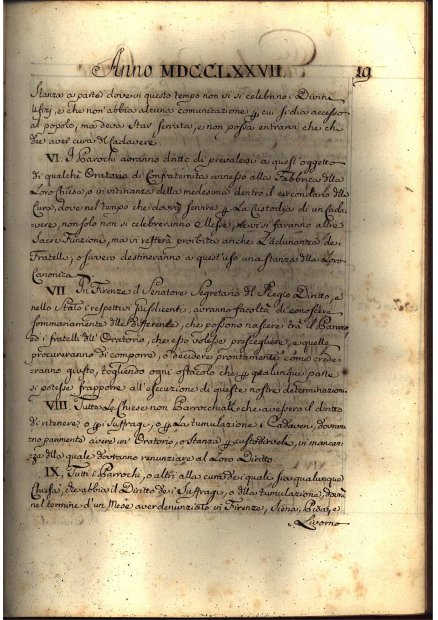 Anno MDCCLXXVII. 19
Stanza a parte dove in questo tempo non vi si celebrino i Divini
Ufizj, e che non abbia alcuna comunicazione p cui si dia accesso
al popolo, ma deva star serrata, e non possa entrarvi che chi
dee aver cura del cadavere.
VI. I Parochi avranno dritto di prevalersi a quest'oggetto
di qualche Oratorio di Confraternita annesso alla Fabbrica della
Loro Chiesa, o in vicinanza della medesima dentro il circondario della
Cura, dove nel tempo che dovrà servire p la Custodia di un Cada-
vere, non solo non si celebreranno Messe, ne vi si faranno altre
Sacre Funzioni, ma vi resterà proibita anche l'adunanza de
Fratelli, o ovvero destineranno a quest'uso una stanza della Loro
Canonica.
VII In Firenze il Senatore Segretario del Regio Diritto, e
nello Stato i respettivi Jusdicenti, avranno facoltà di conoscere
sommariamente delle differenze, che possono nascere tra il Parroco
ed i fratelli dell'Oratorio, che esso volesse prescegliere, e quelle
procureranno di comporre, o decidere prontamente come crede-
ranno giusto, togliendo ogni ostacolo che p qualunque parte
si potesse frapporre all'esecuzione di queste nostre determinazioni.
VIII. Tutte Le Chiese non Parrocchiali che avessero il diritto
di ritenere o p i Suffragi, o p La tumulazione i Cadaveri, dovran-
no parimente avere un'Oratorio, o Stanza p custodirvele, in mancan-
za della quale dovranno renunziare al Loro Diritto.
IX. Tutti i Parrochi, o altri alla cura de i quale sia qualunque
Chiesa, che abbia il Diritto de i Suffragi, o della tumulazione, dovrà
nel termine d'un Mese aver denunziato in Firenze, Siena, Pisa, e
Livorno